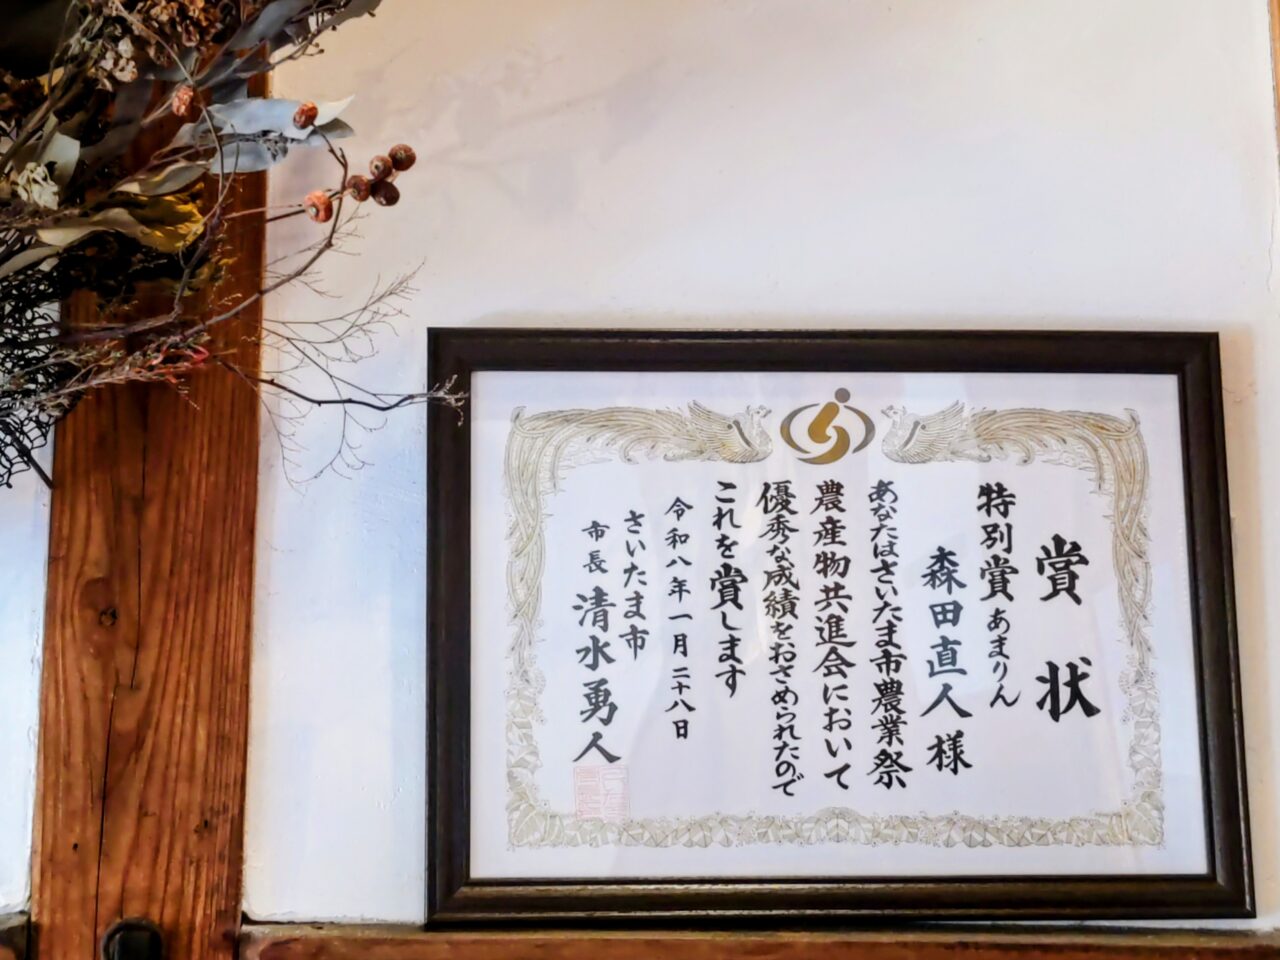 賞状
特別賞 あまりん
森田直人様
あなたはさいたま市農業祭
農産物共進会において
優秀な成績をおさめられたので
これを賞します
令和八年一月二十八日
さいたま市
市長 清水勇人